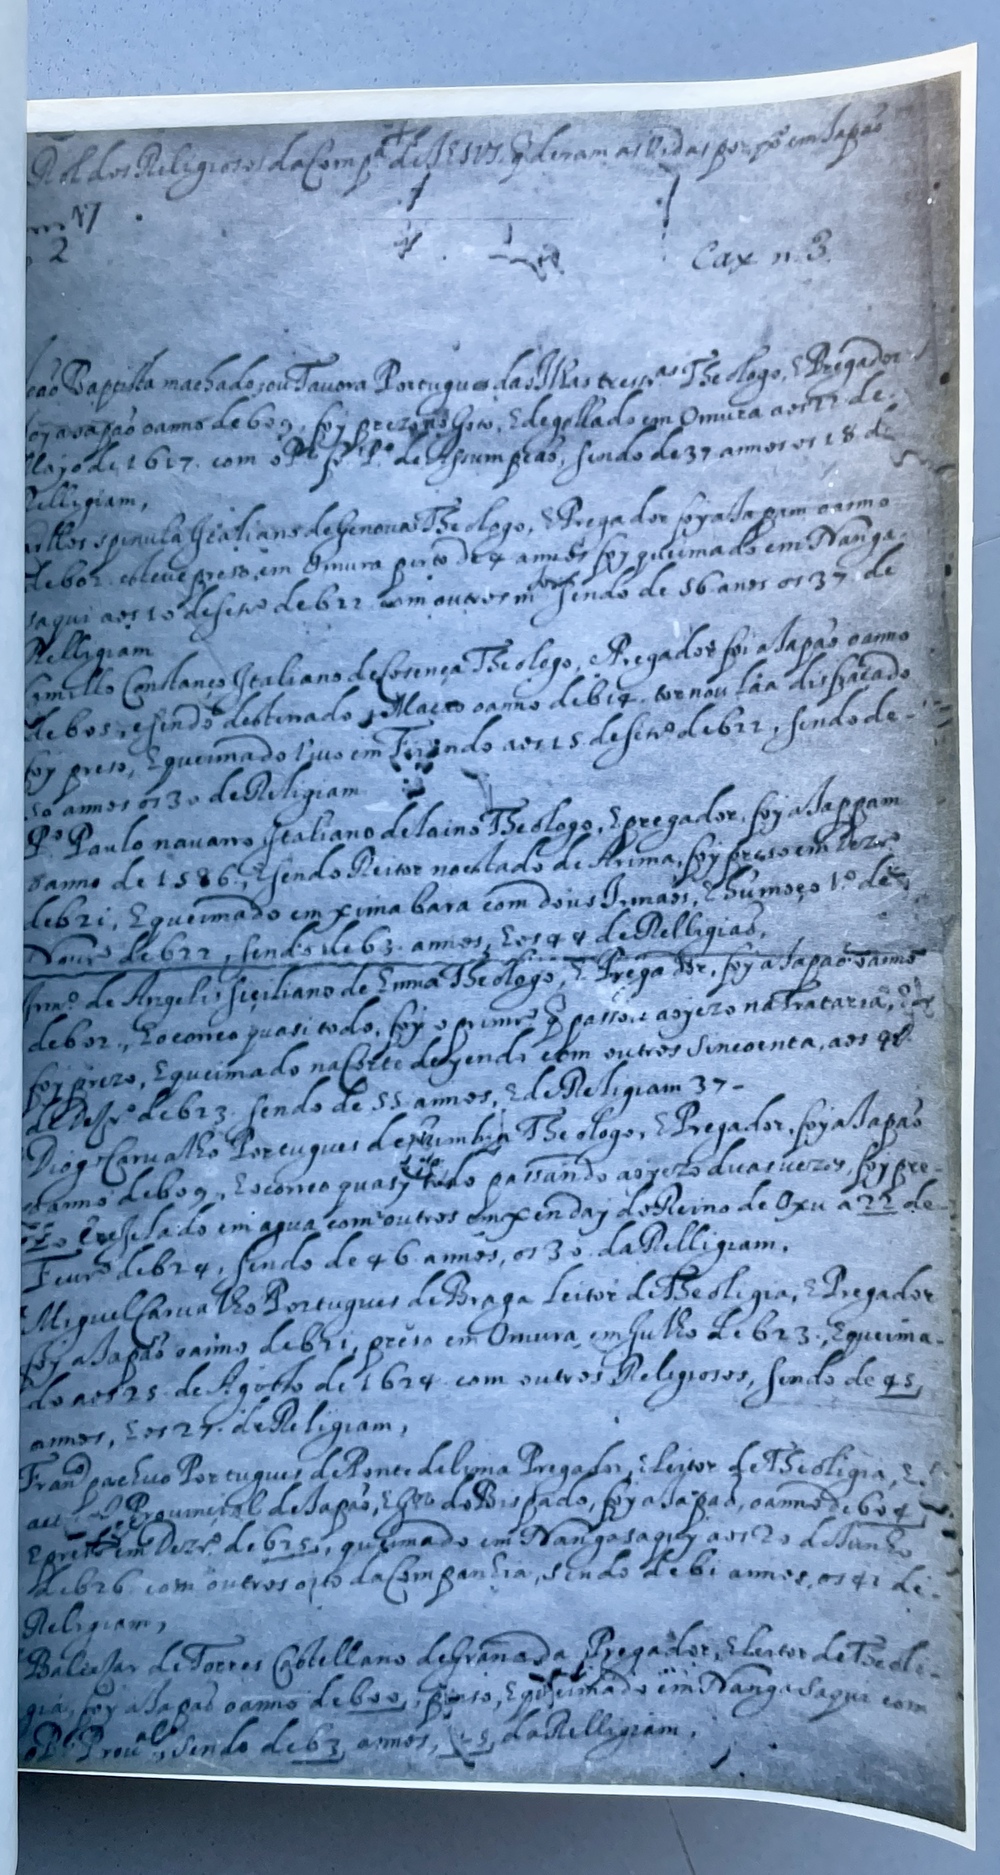 Rol dos Religiosos da Comp.ª de JESUS. q̃ deram as Vidas por em Japaõ
17
2
Cax n. 3.
Baptista machado, ou Tavora Portugues das Ilhas Theologo, E Pregador
Japaõ o anno de 609, foy prezo no Goto, E degollado em Omura aos 22 de
Mayo de 1617. com o P.e fr. P.º de Assumpçaõ, sendo de 37 annos os 18 de
Relligiam,
spinula Italiano de Genova Theologo, E Pregador foy a Japam o anno
de 602. esteve preso, em Omura perto de 4 annos foy queimado em Nanga-
saqui aos 10 de setr.º de 622 com outros sendo de 56 anos os 37 de
Relligiam
Camillo Constanço Italiano de Cosença Theologo, e Pregador foi a Japaõ o anno
de 605, e sendo desterrado a Macao o anno de 614. tornou lâ a disfraçado
foy preso, E queimado vivo em Firando aos 15 de setr.º de 622, sendo de-
50 annos os 30 de Religiam
P.º Paulo navarro Italiano de laino Theologo, E pregador, foy a Jappam
o anno de 1586., E sendo Reitor no colado de Arima, foy preso em Dezr.º
de 621, E queimado em ximabara com dous Irmaõs, E hũ moço 1.º de
Novr.º de 622, sendo de 63 annos, E os 44 de Relligiaõ,
de Angelis siciliano de Enna Theologo, E Pregador, foy a Japaõ o anno
de 602., E o correo quasi todo, foy o primr.º q̃ passou ao yezo na Trataria,
foy prezo, E queimado na Corte de yendo com outros sincoenta, aos
de Dezr.º de 623. sendo de 55 annos, E de Religiam 37-
Diogo Carvalho Portugues de Coimbra Theologo, E Pregador, foy a Japaõ
o anno de 609, E o correo quasy todo passando ao yezo duas vezes, foy pre-
zo, E em agua com outros em xenday do Reino de Oxu a 22 de-
Fevr.º de 624, sendo de 46 annos, os 30. da Relligiam,
Miguel Carvalho Portugues de Braga Leitor de Theoligia, E Pregador
foy a Japaõ o anno de 621, preso em Omura em Julho de 623., E queima-
do aos 25 de Agosto de 1624 com outros Religiosos, sendo de 45,
annos, E os 27. de Religiam,
Fran.co pachuo Portugues de Ponte de lima Pregador, E leitor de Theoligia, E
Provincial de Japaõ, E Gor. do Bispado, foy a Japaõ, o anno de 604
E preso em Dezr.º de 625, queimado em Nangasaquy aos 20 de Junho
de 626 com outros oito da Companhia, sendo de 61 annos, os 41 de
Religiam,
Baltesar de Torres Castellano de Granada Pregador, E leitor de Theoli-
gia, foy a Japaõ o anno de 600, preso, E queimado em Nangasaqui com
o P.e Prov.al, sendo de 63 annos, da Relligiam,